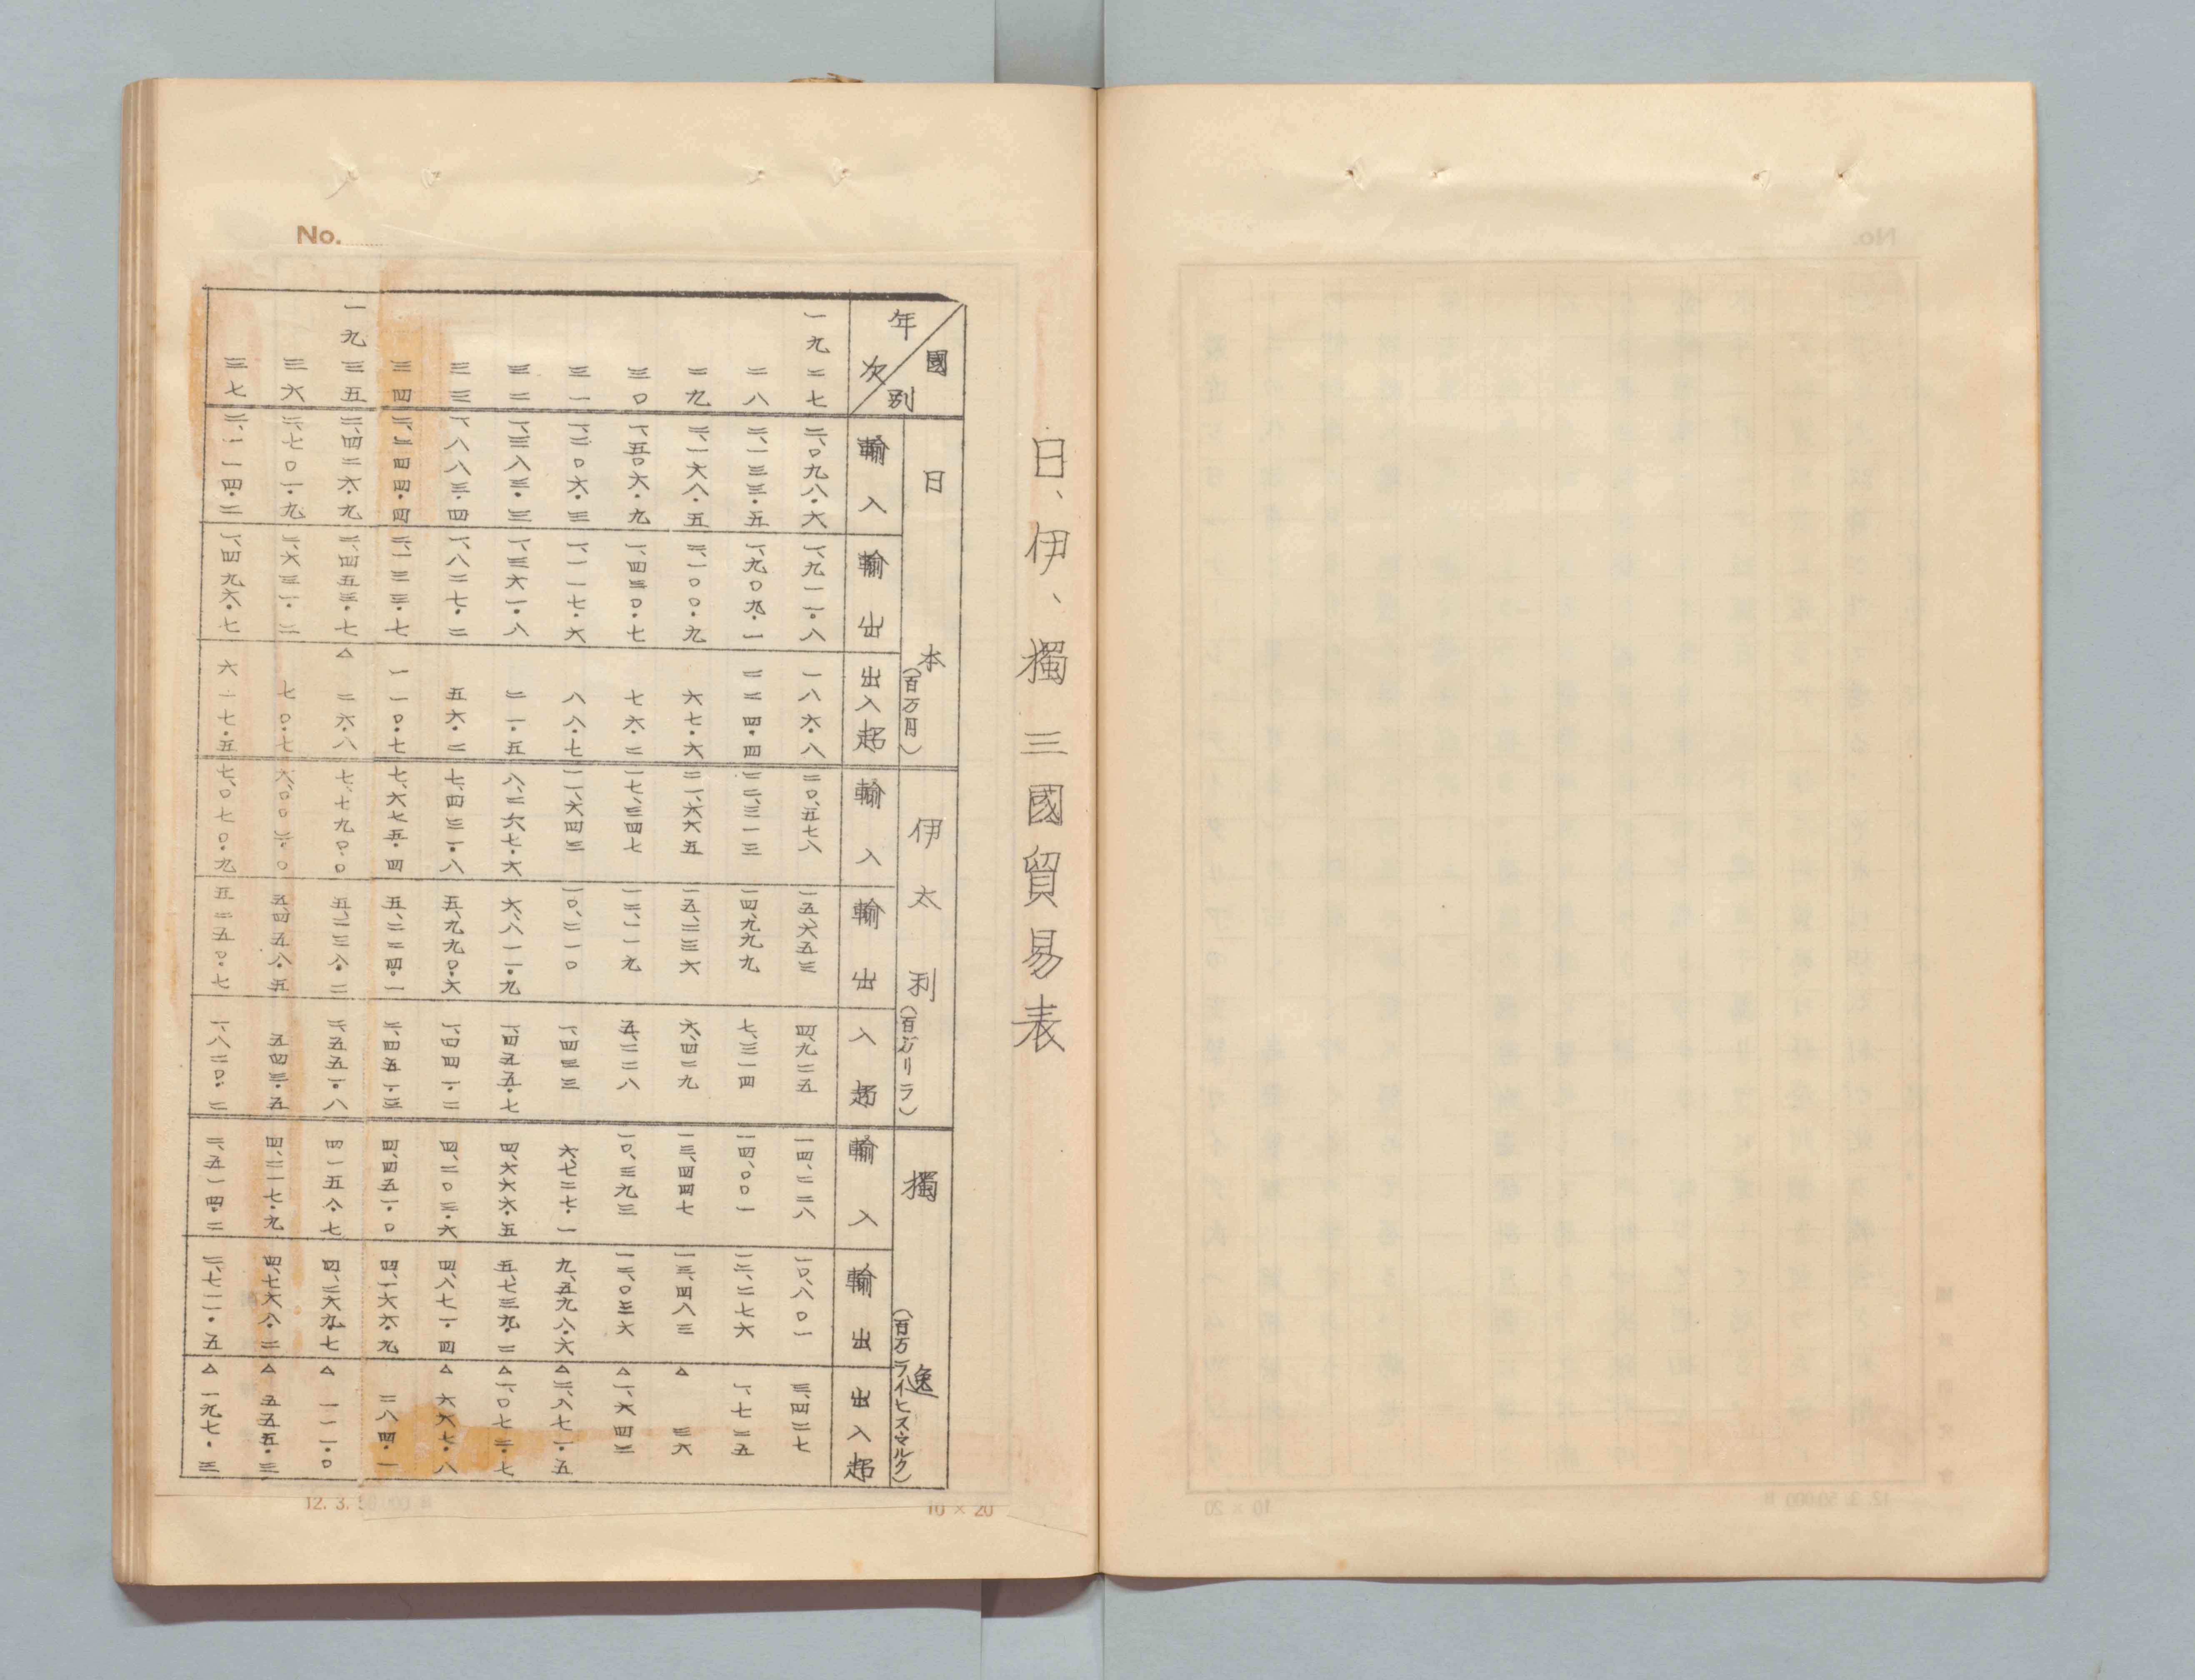 No.
日、伊、獨三國貿易表
國別 日本(百万円) 伊太利(百万リラ) 獨逸(百万ライヒスマルク)
年次 輸入 輸出 出入超 輸入 輸出 入超 輸入 輸出 出入超
一九二七 二、〇九八・六 一、九一一・八 一八六・八 二〇、五七八 一五、六五三 四、九二五 一四、二二八 一〇、八〇一 三、四二七
二八 二、一三三・五 一、九〇九・一 二二四・四 二二、三一三 一四、九九九 七、三一四 一四、〇〇一 一二、二七六 一、七二五
二九 二、一六八・五 二、一〇〇・九 六七・六 二一、六六五 一五、二三六 六、四二九 一三、四四七 一三、四八三 △三六
三〇 一、五〇六・九 一、四三〇・七 七六・二 一七、三四七 一二、一一九 五、二二八 一〇、三九三 一二、〇三六 △一、六四三
三一 一、二〇六・三 一、一一七・六 八八・七 一一、六四三 一〇、二一〇 一、四三三 六、七二七・一 九、五九八・六 △二、八七一・五
三二 一、三八三・三 一、三六一・八 二一・五 八、二六七・六 六、八一一・九 一、四五五・七 四、六六六・五 五、七三九・二 △一、〇七二・七
三三 一、八八三・四 一、八二七・二 五六・二 七、四三一・八 五、九九〇・六 一、四四一・二 四、二〇三・六 四、八七一・四 △六六七・八
三四 二、二四四・四 二、一三三・七 一一〇・七 七、六七五・四 五、二二四・一 二、四五一・三 四、四五一・〇 四、一六六・九 二八四・一
一九三五 二、四二六・九 二、四五三・七 △二六・八 七、七九〇・〇 五、二三八・二 二、五五一・八 四一五八・七 四、二六九・七 △一一一・〇
三六 二、七〇一・九 二、六三一・二 七〇・七 六、〇〇二・〇 五、四五八・五 五四三・五 四、二一七・九 四、七六八・二 △五五五・三
三七 二、一一四・二 一、四九六・七 六一七・五 七、〇七〇・九 五二五〇・七 一、八二〇・二 二、五一四・二 二、七一一・五 △一九七・三
12. 3. 50 000 B
10 × 20